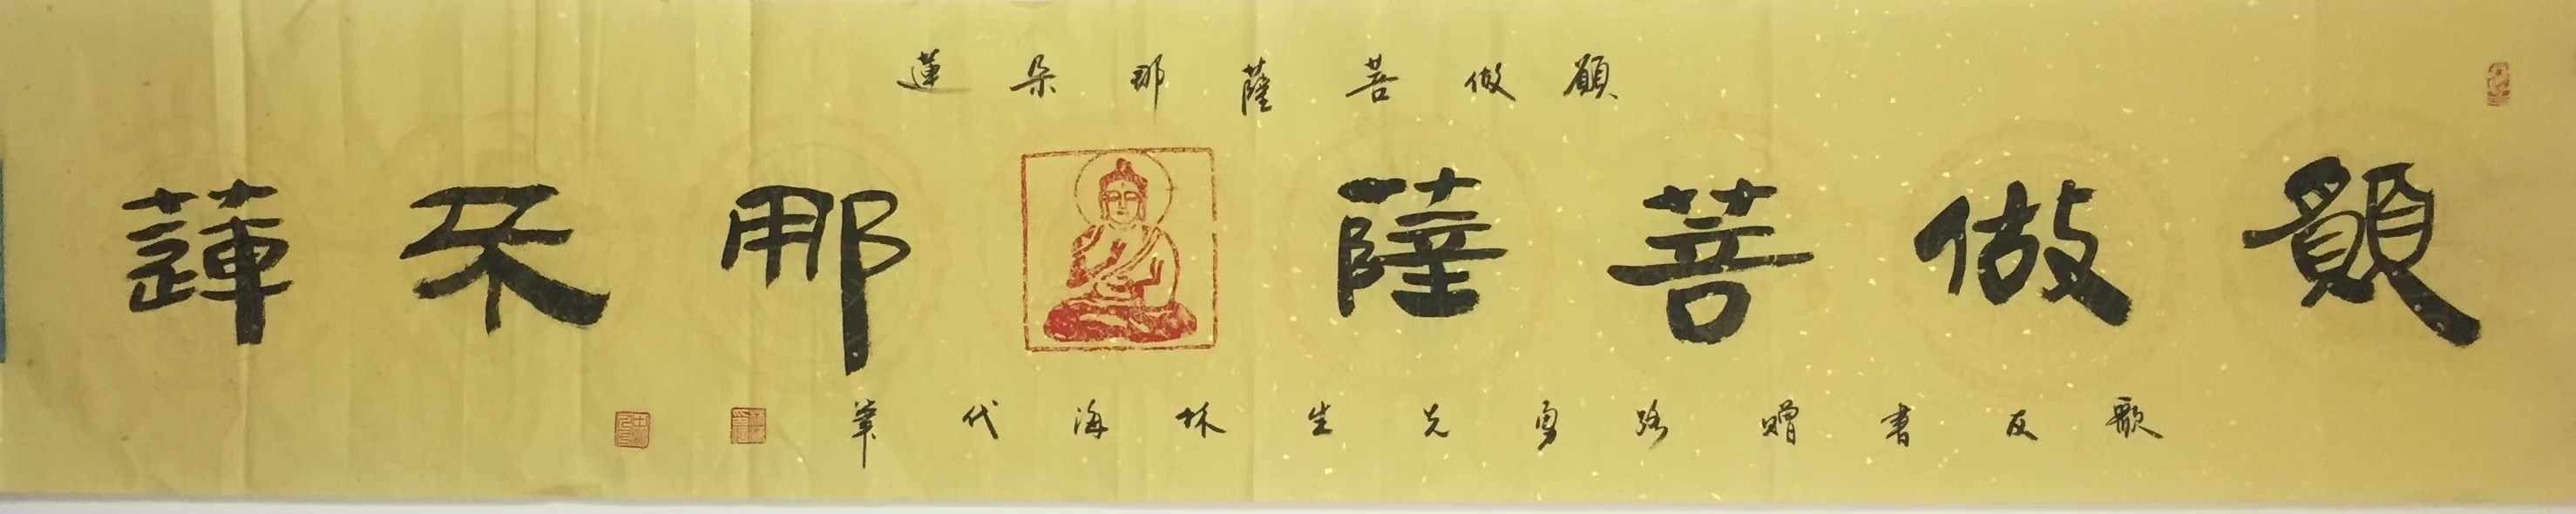 願做菩薩那朵蓮
願做菩薩那朵蓮
歌友書贈路勇先生林海代筆